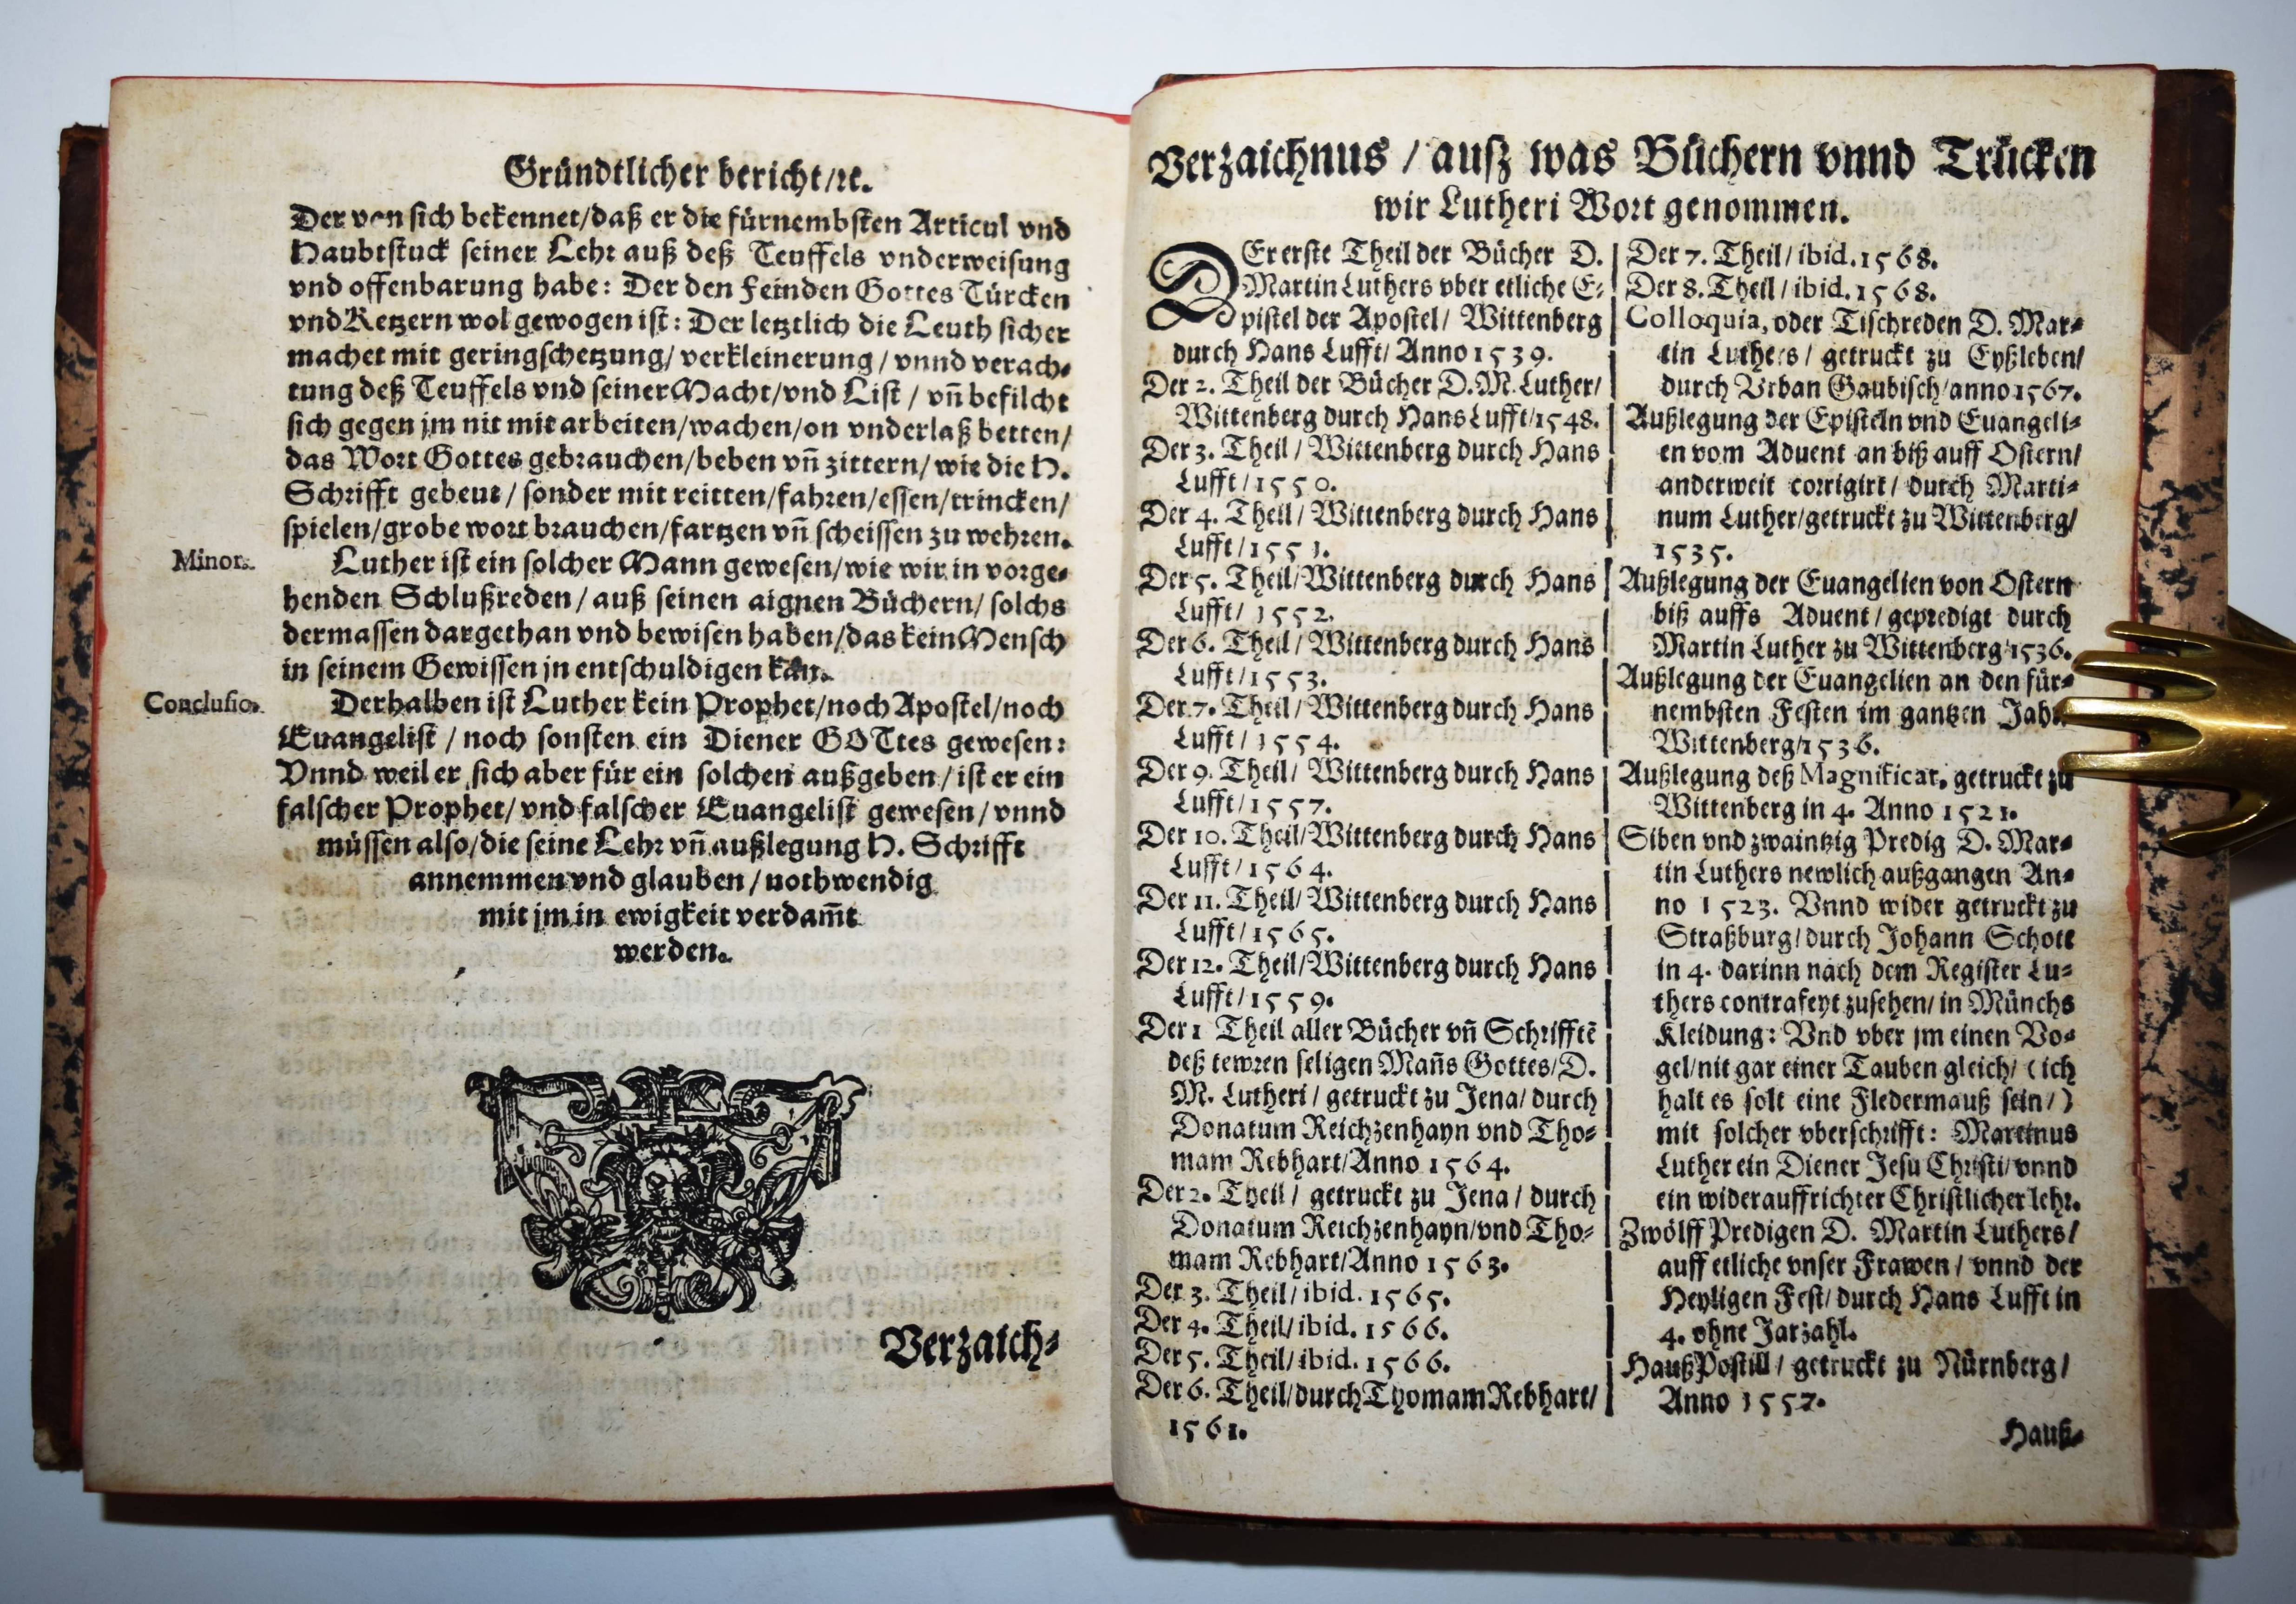 Gründtlicher bericht/ꝛc.
Der von sich bekennet/daß er die fürnembsten Articul vnd
Haubtstuck seiner Lehr auß deß Teuffels vnderweisung
vnd offenbarung habe: Der den Feinden Gottes Türcken
vnd Ketzern wol gewogen ist: Der letztlich die Leuth sicher
machet mit geringschetzung/ verkleinerung/ vnnd verach⸗
tung deß Teuffels vnd seiner Macht/vnd List / vñ befilcht
sich gegen jm nit mit arbeiten/wachen/on vnderlaß betten/
das Wort Gottes gebrauchen/beben vñ zittern/ wie die H.
Schrifft gebeut / sonder mit reitten/fahren/essen/trincken/
spielen/grobe wort brauchen/fartzen vñ scheissen zu wehren.
Minor.
Luther ist ein solcher Mann gewesen/wie wir in vorge⸗
henden Schlußreden / auß seinen aignen Büchern/ solchs
dermassen dargethan vnd bewisen haben/das kein Mensch
in seinem Gewissen jn entschuldigen kan.
Conclusio.
Derhalben ist Luther kein Prophet/noch Apostel/noch
Euangelist / noch sonsten ein Diener GOTtes gewesen:
Vnnd weil er sich aber für ein solchen außgeben / ist er ein
falscher Prophet/ vnd falscher Euangelist gewesen / vnnd
müssen also/die seine Lehr vñ außlegung H. Schrifft
annemmen vnd glauben / nothwendig
mit jm in ewigkeit verdam̃t
werden.
Verzaich⸗
Verzaichnus / ausz was Büchern vnnd Trücken
wir Lutheri Wort genommen.
DEr erste Theil der Bücher D.
Martin Luthers vber etliche E⸗
pistel der Apostel/ Wittenberg
durch Hans Lufft/ Anno 1539.
Der 2. Theil der Bücher D. M. Luther/
Wittenberg durch Hans Lufft/1548.
Der 3. Theil / Wittenberg durch Hans
Lufft/1550.
Der 4. Theil / Wittenberg durch Hans
Lufft/1551.
Der 5. Theil/Wittenberg durch Hans
Lufft/ 1552.
Der 6. Theil / Wittenberg durch Hans
Lufft/1553.
Der 7. Theil / Wittenberg durch Hans
Lufft/ 1554.
Der 9. Theil/ Wittenberg durch Hans
Lufft/1557.
Der 10. Theil/Wittenberg durch Hans
Lufft/1564.
Der 11. Theil/ Wittenberg durch Hans
Lufft/1565.
Der 12. Theil/Wittenberg durch Hans
Lufft/1559.
Der 1 Theil aller Bücher vñ Schrifftē
deß tewren seligen Mañs Gottes/ D.
M. Lutheri / getruckt zu Jena/ durch
Donatum Reichzenhayn vnd Tho⸗
mam Rebhart/Anno 1564.
Der 2. Theil / getruckt zu Jena / durch
Donatum Reichzenhayn/vnd Tho⸗
mam Rebhart/Anno 1563.
Der 3. Theil/ ibid. 1565.
Der 4. Theil/ ibid. 1566.
Der 5. Theil/ ibid. 1566.
Der 6. Theil/durch Thomam Rebhart/
1561.
Der 7. Theil/ ibid. 1568.
Der 8. Theil / ibid. 1568.
Colloquia, oder Tischreden D. Mar⸗
tin Luthers / getruckt zu Eyßleben/
durch Vrban Gaubisch/anno 1567.
Außlegung der Episteln vnd Euangeli⸗
en vom Aduent an biß auff Ostern/
anderweit corrigirt / durch Marti⸗
num Luther/getruckt zu Wittenberg/
1535.
Außlegung der Euangelien von Ostern
biß auffs Aduent / gepredigt durch
Martin Luther zu Wittenberg 1536.
Außlegung der Euangelien an den für⸗
nembsten Festen im gantzen Jahr
Wittenberg/1536.
Außlegung deß Magnificat, getruckt zu
Wittenberg in 4. Anno 1521.
Siben vnd zwaintzig Predig D. Mar⸗
tin Luthers newlich außgangen An⸗
no 1523. Vnnd wider getruckt zu
Straßburg/durch Johann Schott
in 4. darinn nach dem Register Lu⸗
thers contrafeyt zusehen/ in Münchs
Kleidung: Vnd vber jm einen Vo⸗
gel/nit gar einer Tauben gleich/ (ich
halt es solt eine Fledermauß sein/)
mit solcher vberschrifft: Martinus
Luther ein Diener Jesu Christi/vnnd
ein widerauffrichter Christlicher lehr.
Zwölff Predigen D. Martin Luthers/
auff etliche vnser Frawen / vnnd der
Heyligen Fest/ durch Hans Lufft in
4. ohne Jarzahl.
HaußPostill / getruckt zu Nürnberg/
Anno 1557.
Hauß⸗